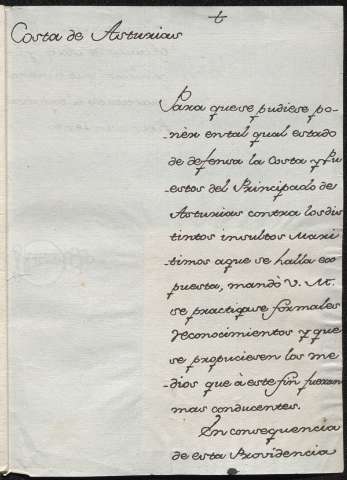 Costa de Asturias
Para que se pudiese po-
-nèr en tal qual estado
de defensa la Costa y Pu-
estos del Principado de
Asturias contra los dis
tintos insultos Mari
timos a que se halla ex
puesta, mandò V. M.
se practiquse formales
reconocimientos y que
se propuciesen los me
-dios que à este fin fueran
mas conducentes.
En consequencia
de esta Providencia